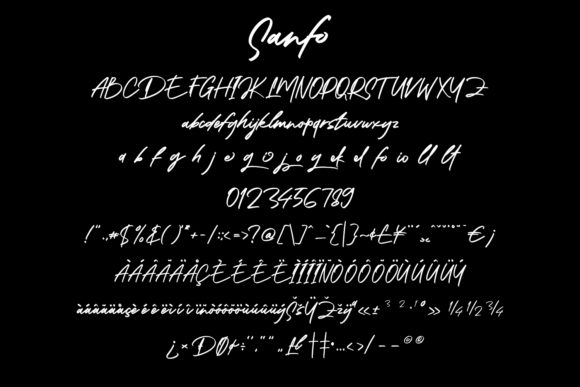 Sanfo
ABCDEFGHIJKLMNOPQRSTUVWXYZ
abcdefghijklmnopqrstuvwxyz
a b f g h j o q o g el d fo io ll lt
0123456789
!".,#$%&()*+-/:;<=>?@[\]^_{|}~¢£¥
ÀÁÂÃÄÅÇÈÉÊËÌÍÎÏÑÒÓÔÕÖÙÚÛÜÝ
àáâãäåçèéêëìíîïñòóôõöùúûüýŠšŸŽžÿª«±³²·¹º»¼½¾
¿×DØł÷